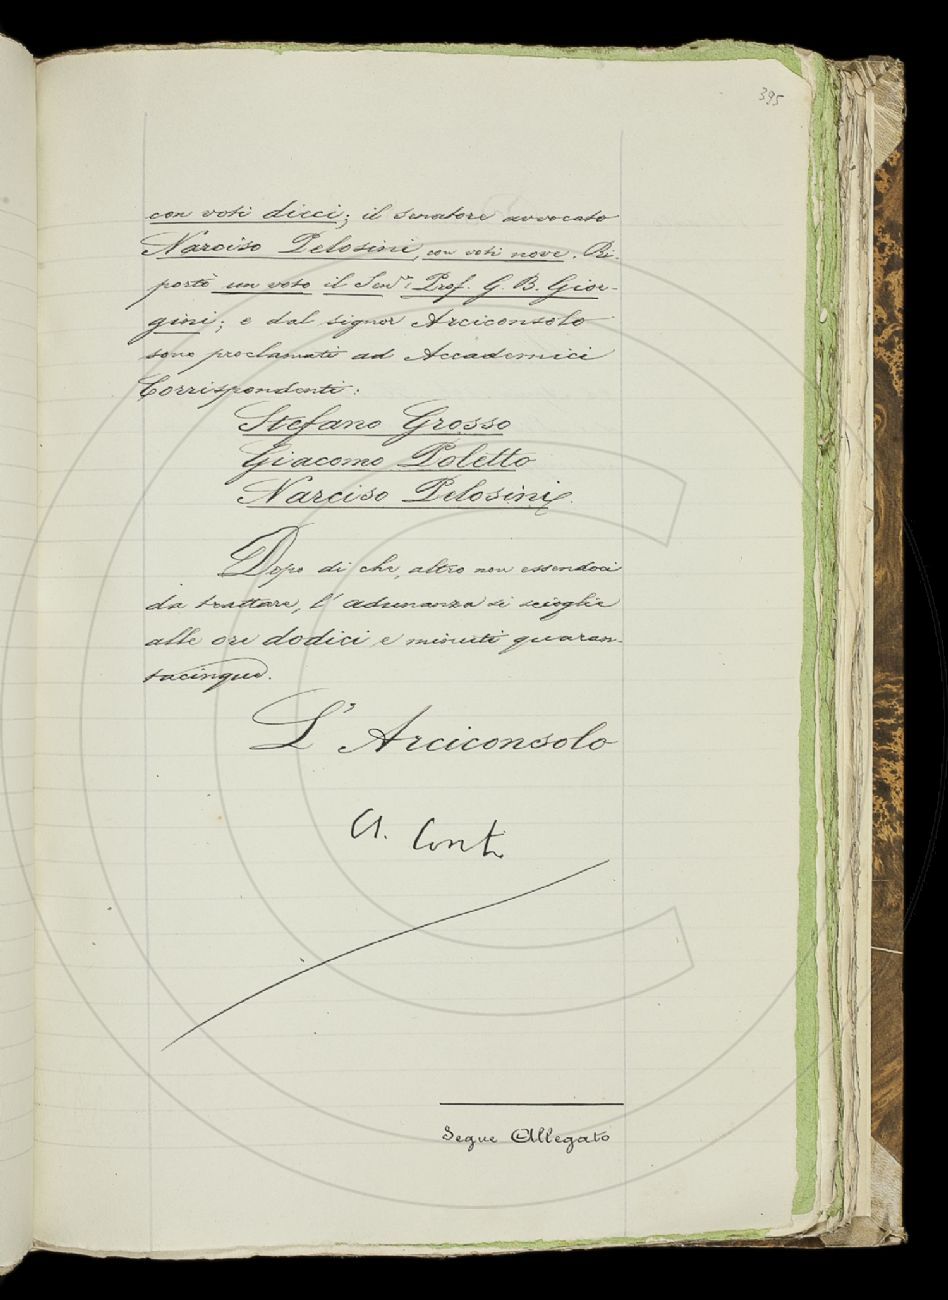 395
con voti dieci; il senatore avvocato
Narciso Pelosini, con voti nove. Ri-
portò un voto il Sen.re Prof. G. B. Gior-
gini; e dal signor Arciconsolo
sono proclamati ad Accademici
Corrispondenti:
Stefano Grosso
Giacomo Poletto
Narciso Pelosini
Dopo di che, altro non essendoci
da trattare, l'adunanza si scioglie
alle ore dodici e minuti quaran-
tacinque.
L'Arciconsolo
A. Conti
Segue Allegato